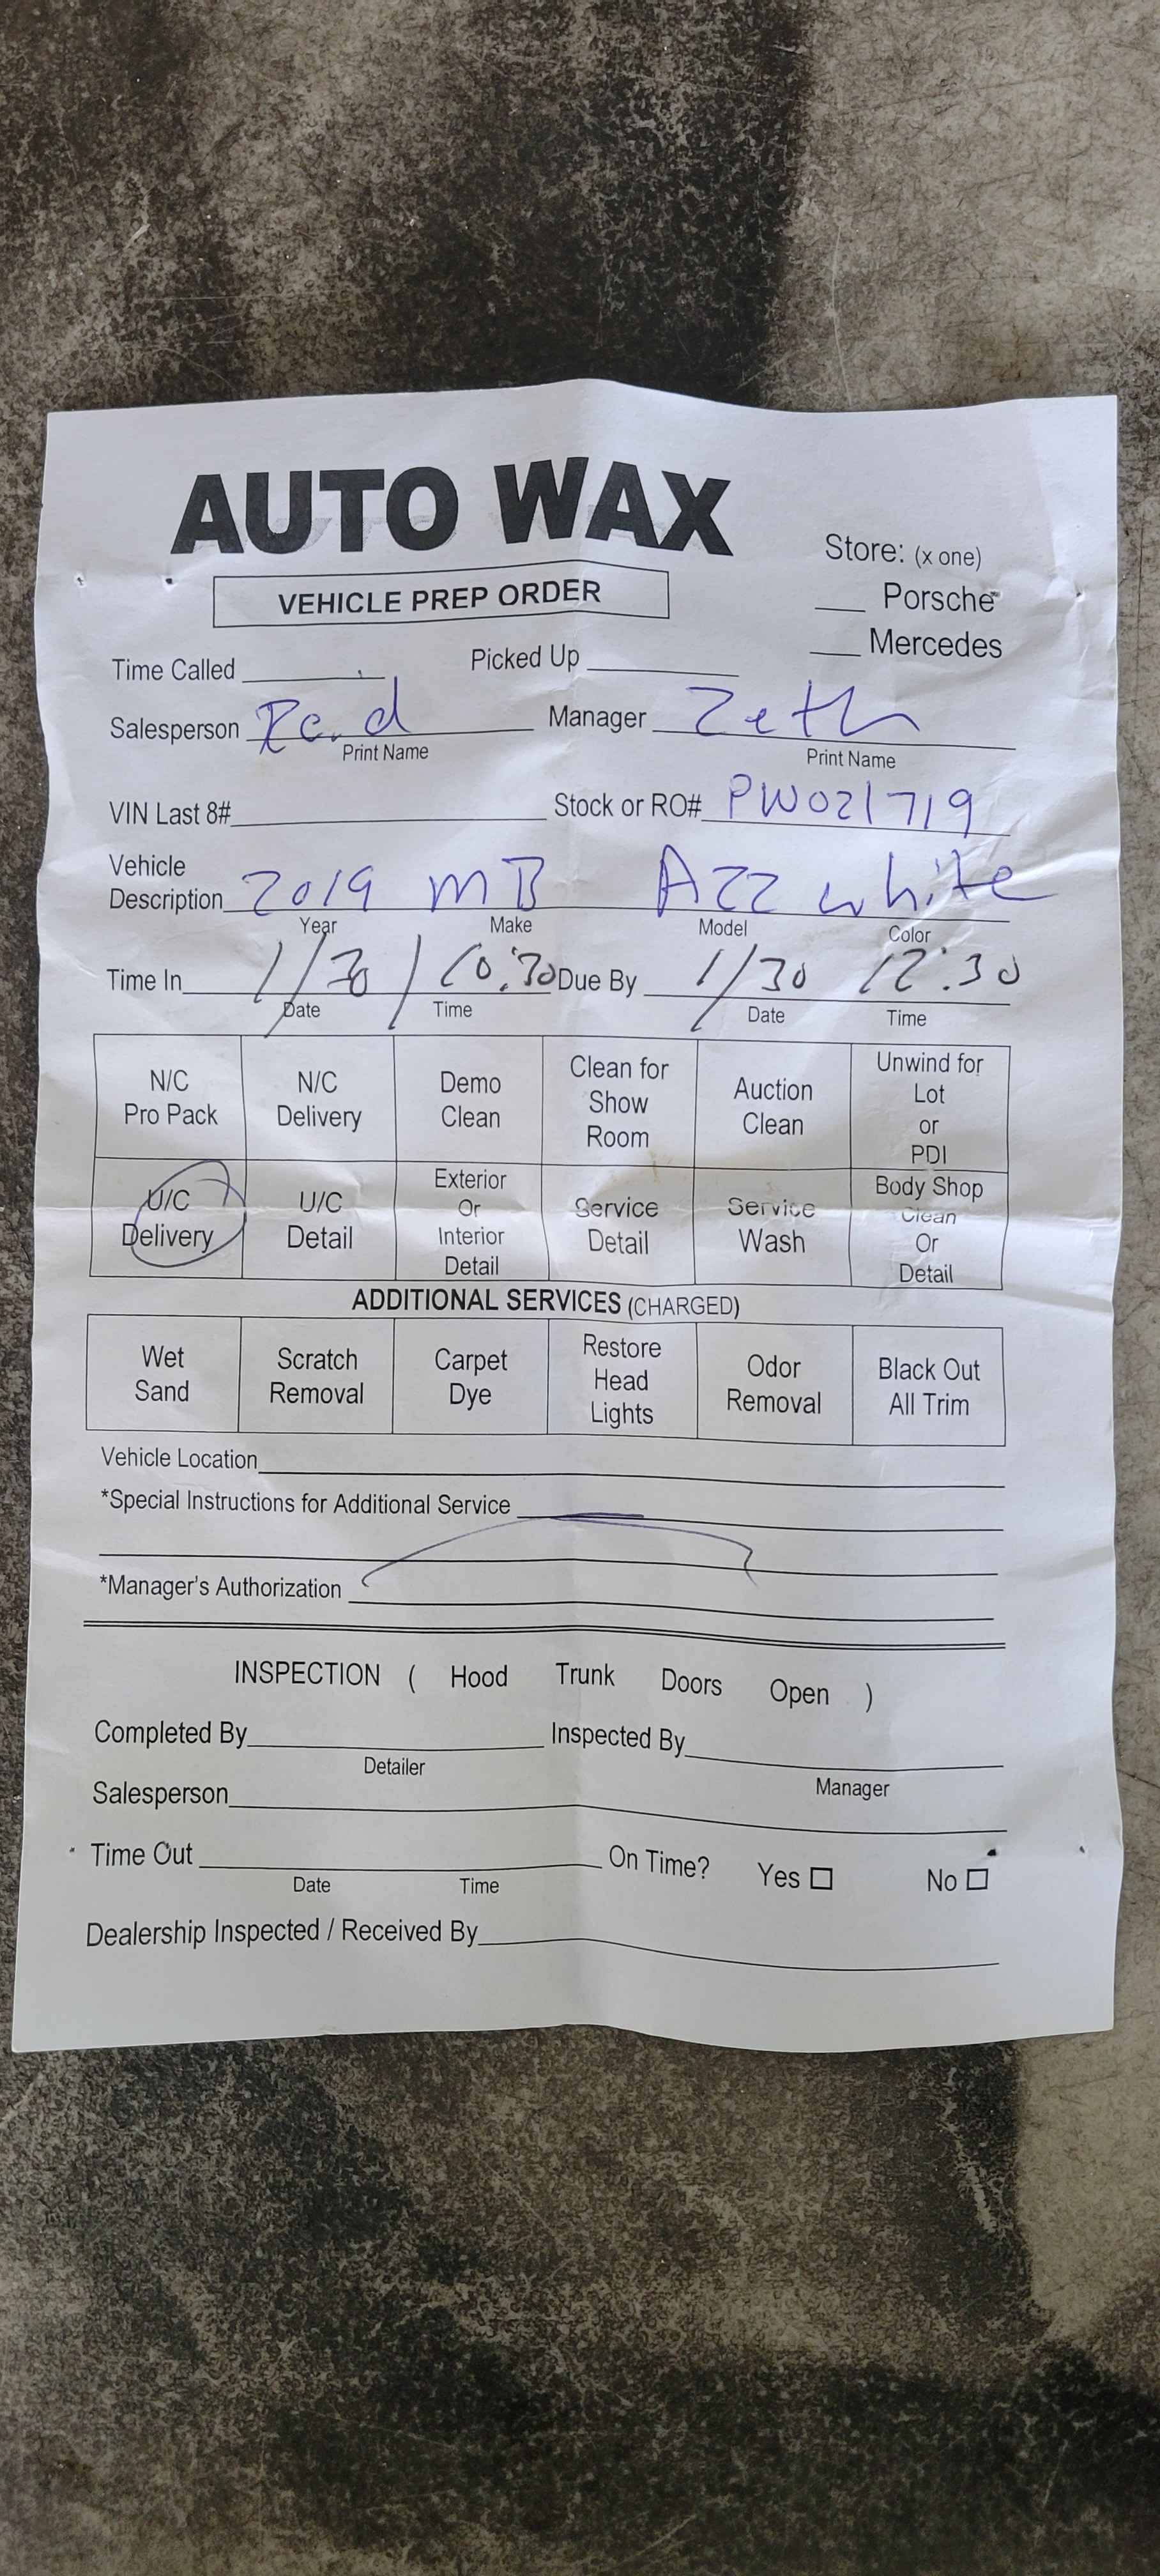 AUTO WAX
Store: (x one)
VEHICLE PREP ORDER
___ Porsche
___ Mercedes
Time Called Picked Up
Salesperson Manager Zeth
Print Name Print Name
VIN Last 8# Stock or RO# PW021719
Vehicle
Description 2019 MB A22 white
Year Make Model Color
Time In 1/30/10:30 Due By 1/30 12:30
Date Time Date Time
N/C Pro Pack N/C Delivery Demo Clean Clean for Show Room Auction Clean Unwind for Lot or PDI
U/C Delivery U/C Detail Exterior Or Interior Detail Service Detail Service Wash Body Shop Clean Or Detail
ADDITIONAL SERVICES (CHARGED)
Wet Sand Scratch Removal Carpet Dye Restore Head Lights Odor Removal Black Out All Trim
Vehicle Location
*Special Instructions for Additional Service
*Manager's Authorization
INSPECTION ( Hood Trunk Doors Open )
Completed By Inspected By
Detailer Manager
Salesperson
Time Out On Time? Yes □ No □
Date Time
Dealership Inspected / Received By